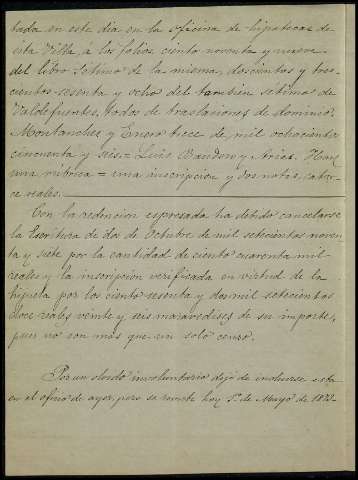 tada en este dia en la oficina de hipotecas de
esta Villa á los folios ciento noventa y nueve
del libro setimo de la misma, doscientos y tres-
cientos sesenta y ocho del tambien setimo de
Valdefuentes, todos de traslaciones de dominio.
Montanches y Enero trece de mil ochocientos
cincuenta y seis = Luis Baudon y Arias. Hay
una rúbrica = una inscripcion y dos notas, cator-
ce reales.
Con la redencion espresada ha debido cancelarse
la Escritura de dos de Octubre de mil setecientos noven-
ta y siete por la cantidad de ciento cuarenta mil
reales y la inscripcion verificada en virtud de la
hijuela por los ciento sesenta y dos mil setecientos
doce reales veinte y seis maravedises de su importe,
pues no son más que un solo censo.
Por un olvido involuntario dejó de incluirse esta
en el oficio de ayer, pero se remite hoy 1º de Mayo de